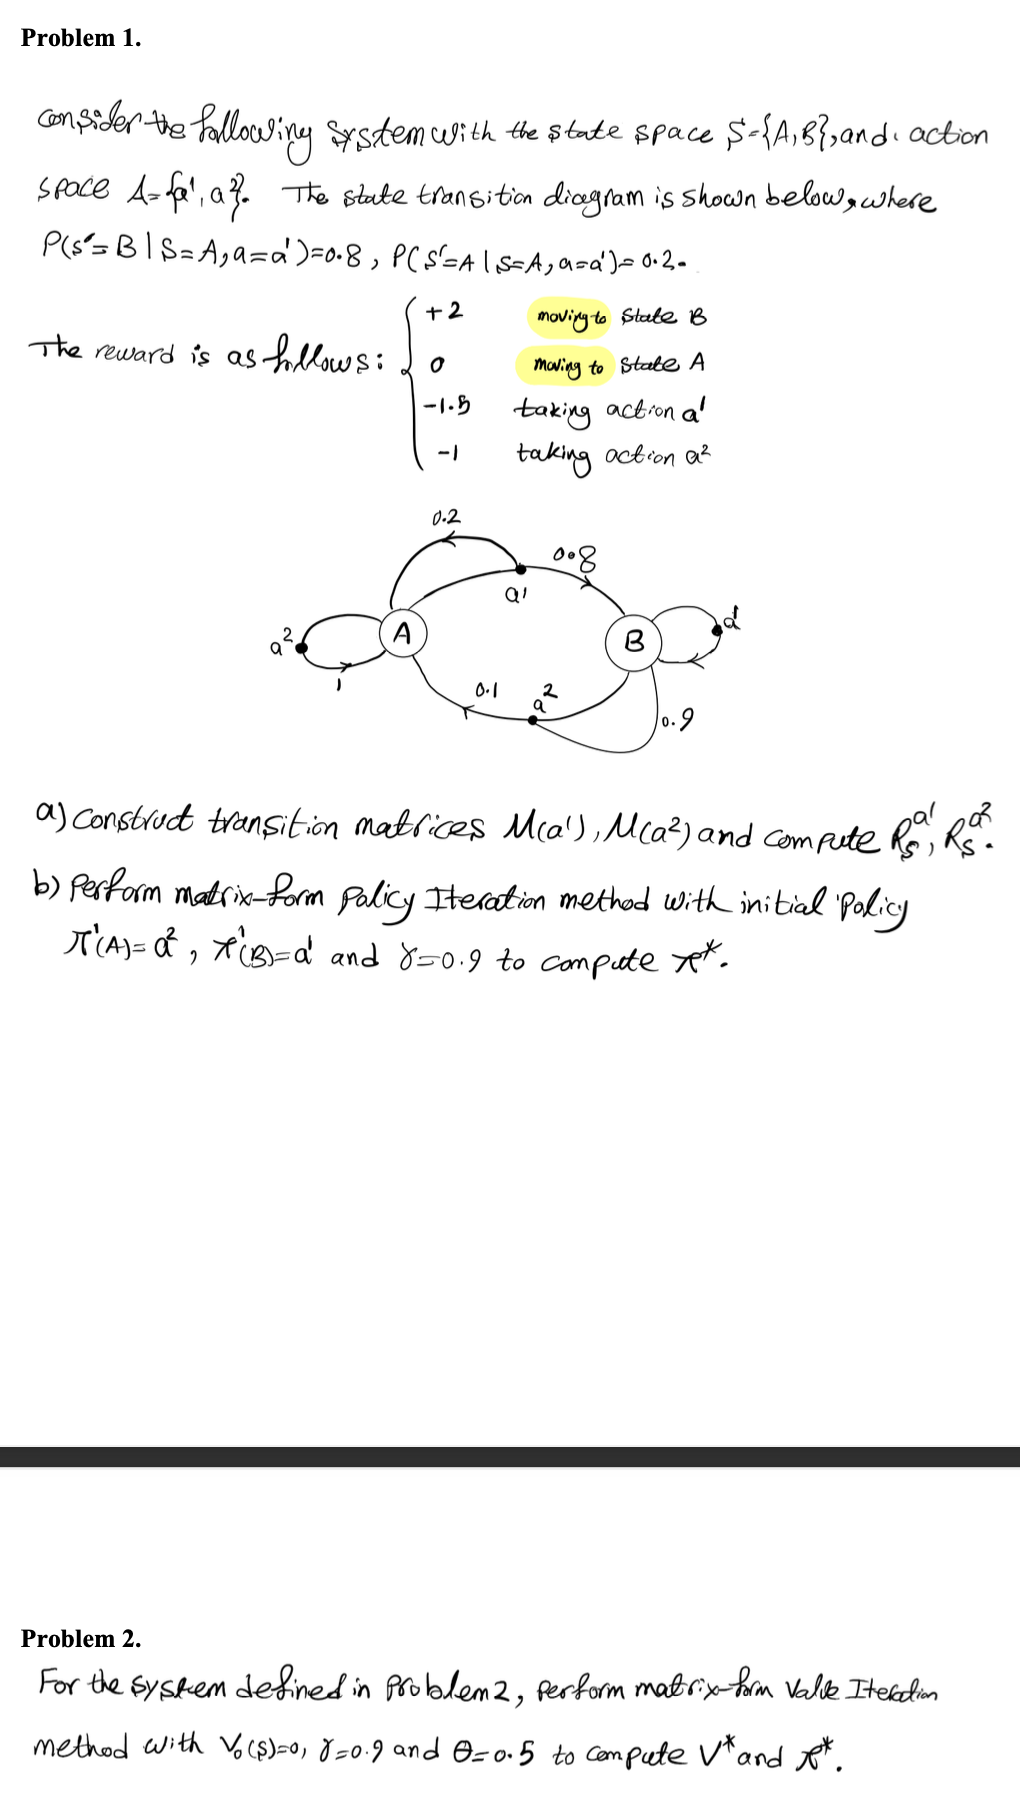 Problem 1.
Consider the following system with the state space S={A,B}, and action
space A={a¹,a²}. The state transition diagram is shown below, where
P(s'=B|S=A,a=a')=0.8, P(s'=A|S=A,a=a')=0.2.
+2 moving to State B
The reward is as follows: 0 moving to State A
-1.5 taking action a¹
-1 taking action a²
0.2
0.8
a¹
a² A B a¹
1
0.1 a²
0.9
a) construct transition matrices M(a¹), M(a²) and compute Rₛᵃ¹, Rₛᵃ².
b) Perform matrix-form Policy Iteration method with initial policy
π¹(A)=a², π¹(B)=a¹ and γ=0.9 to compute π*.
Problem 2.
For the system defined in problem2, perform matrix-form Value Iteration
method with V₀(S)=0, γ=0.9 and θ=0.5 to compute V* and π*.